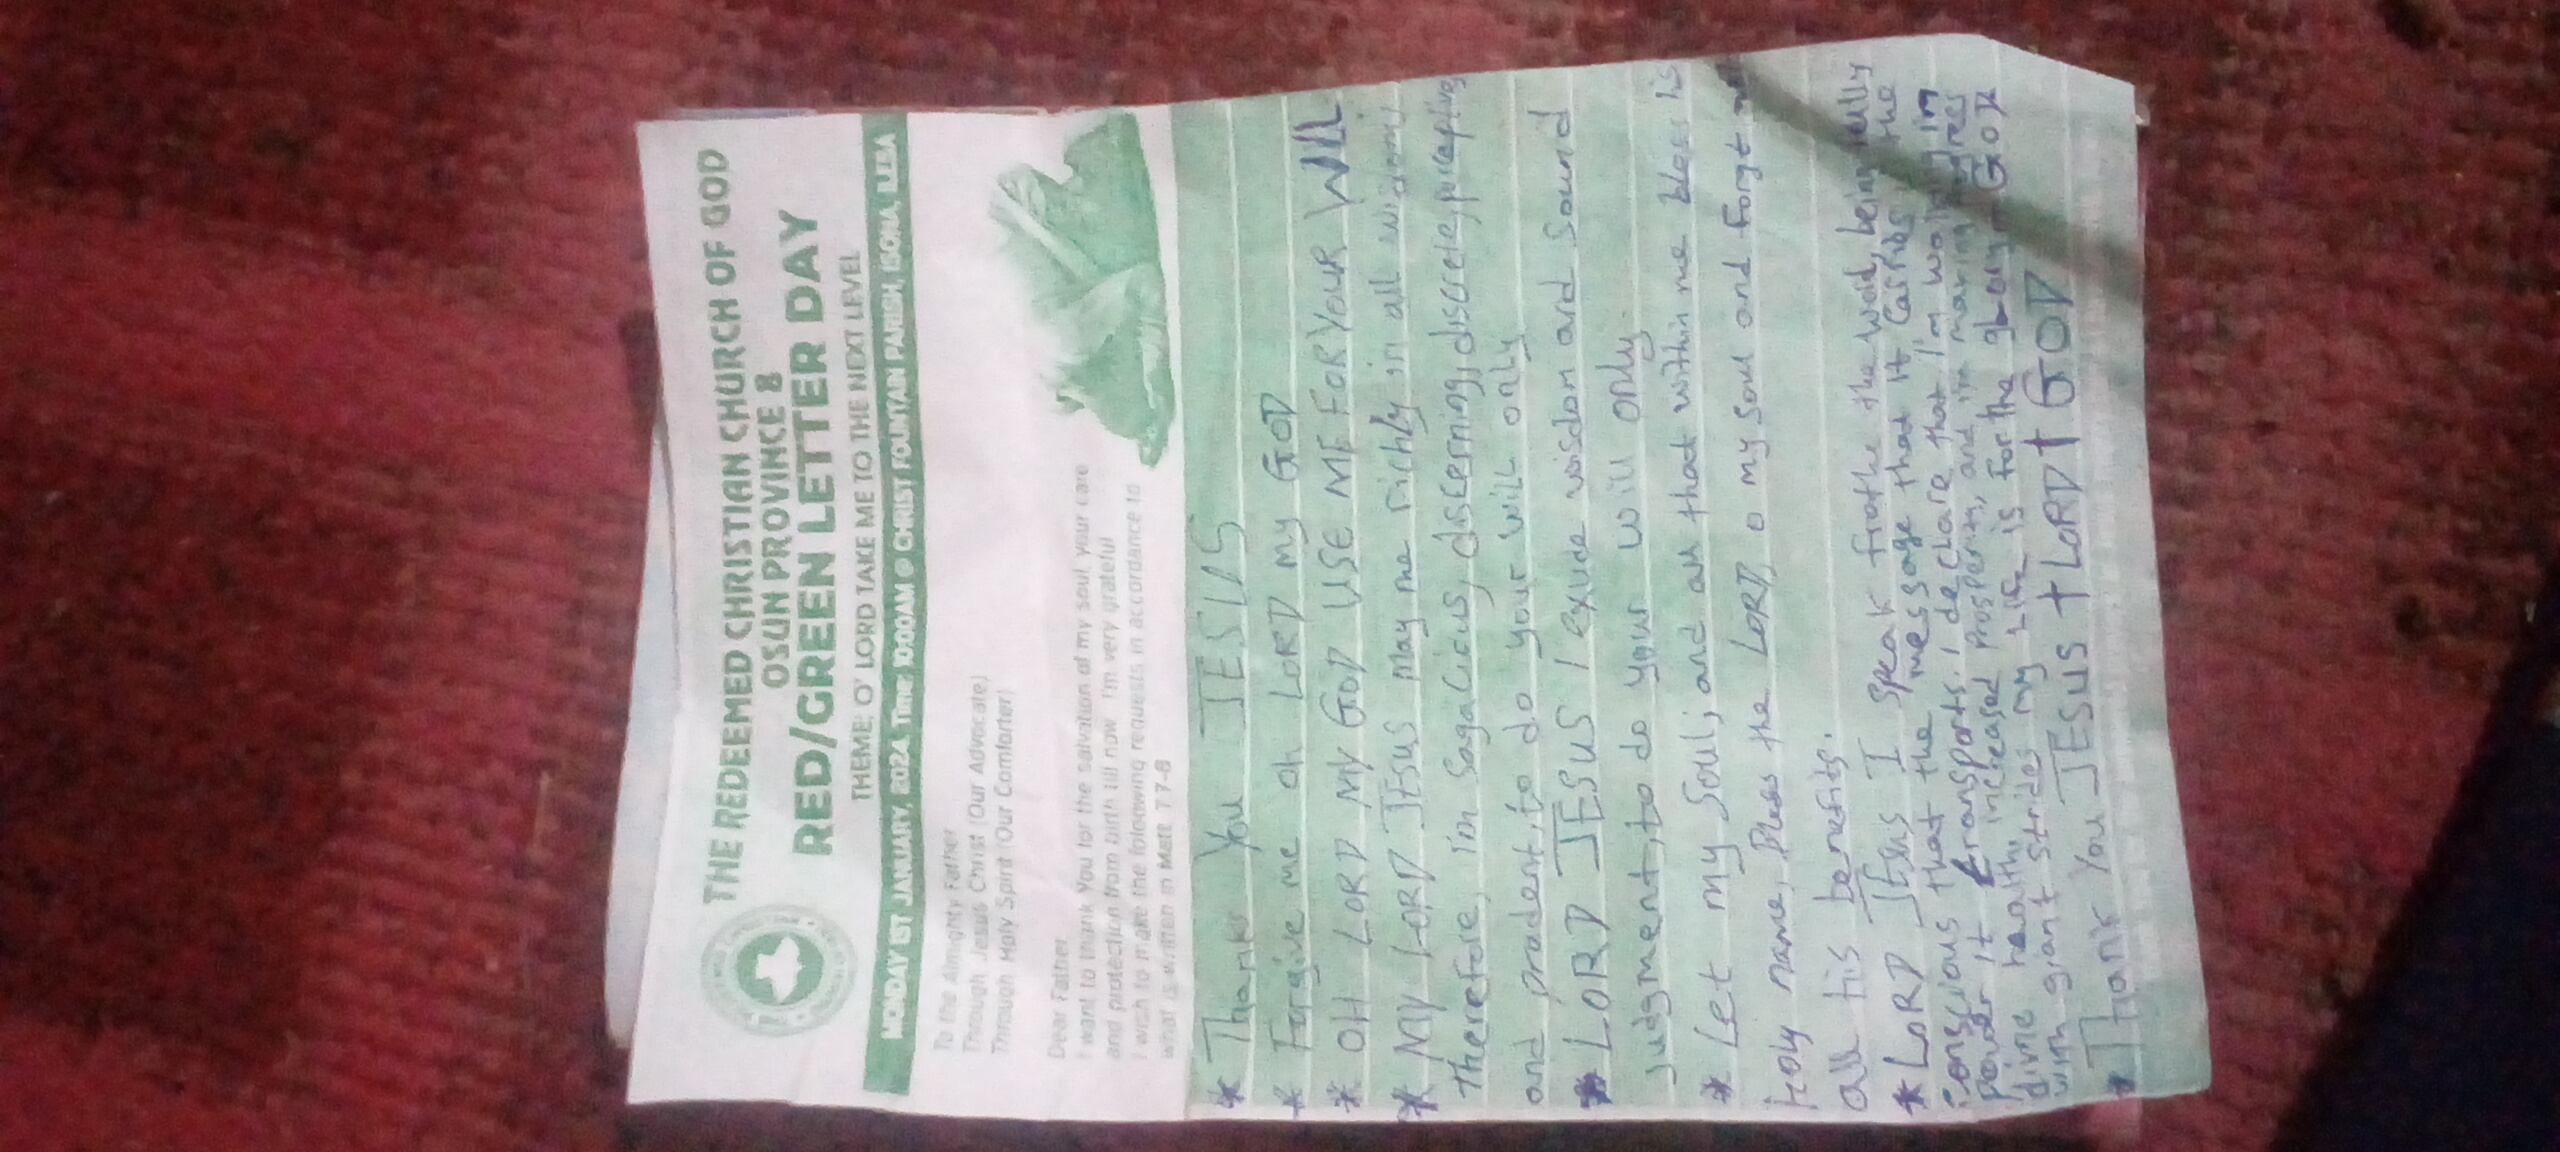 THE REDEEMED CHRISTIAN CHURCH OF GOD
OSUN PROVINCE 8
RED/GREEN LETTER DAY
THEME: O' LORD TAKE ME TO THE NEXT LEVEL
MONDAY 1ST JANUARY, 2024. Time: 10:00AM @ CHRIST FOUNTAIN PARISH, ISONA, ILESA
To the Almighty Father
Through Jesus Christ (Our Advocate)
Through Holy Spirit (Our Comforter)
Dear Father,
I want to thank You for the salvation of my soul, your care
and protection from birth till now. I'm very grateful
I wish to make the foloowing requests in accordance to
what is written in Matt. 7:7-8
* Thanks You JESUS
* Forgive me oh LORD my GOD
* OH LORD MY GOD USE ME FOR YOUR WILL
* MY LORD JESUS may me richly in all wisdom;
therefore, i'm Sagacious, discerning, discrete, perceptive,
and prudent, to do your will only
* LORD JESUS I exude wisdom and Sound
judgment, to do your will only.
* Let my Soul; and all that within me bless his
Holy name, Bless the LORD, o my soul and forgt not
all His benefits.
* LORD JESUS I speak the word, being fully
conscious that the message that it carries the
power it transports. I declare that I'm in
divine health, increased Prosperity, and i'm making
with giant strides my Life is for the glory GOD
* Thank You JESUS † LORD † GOD